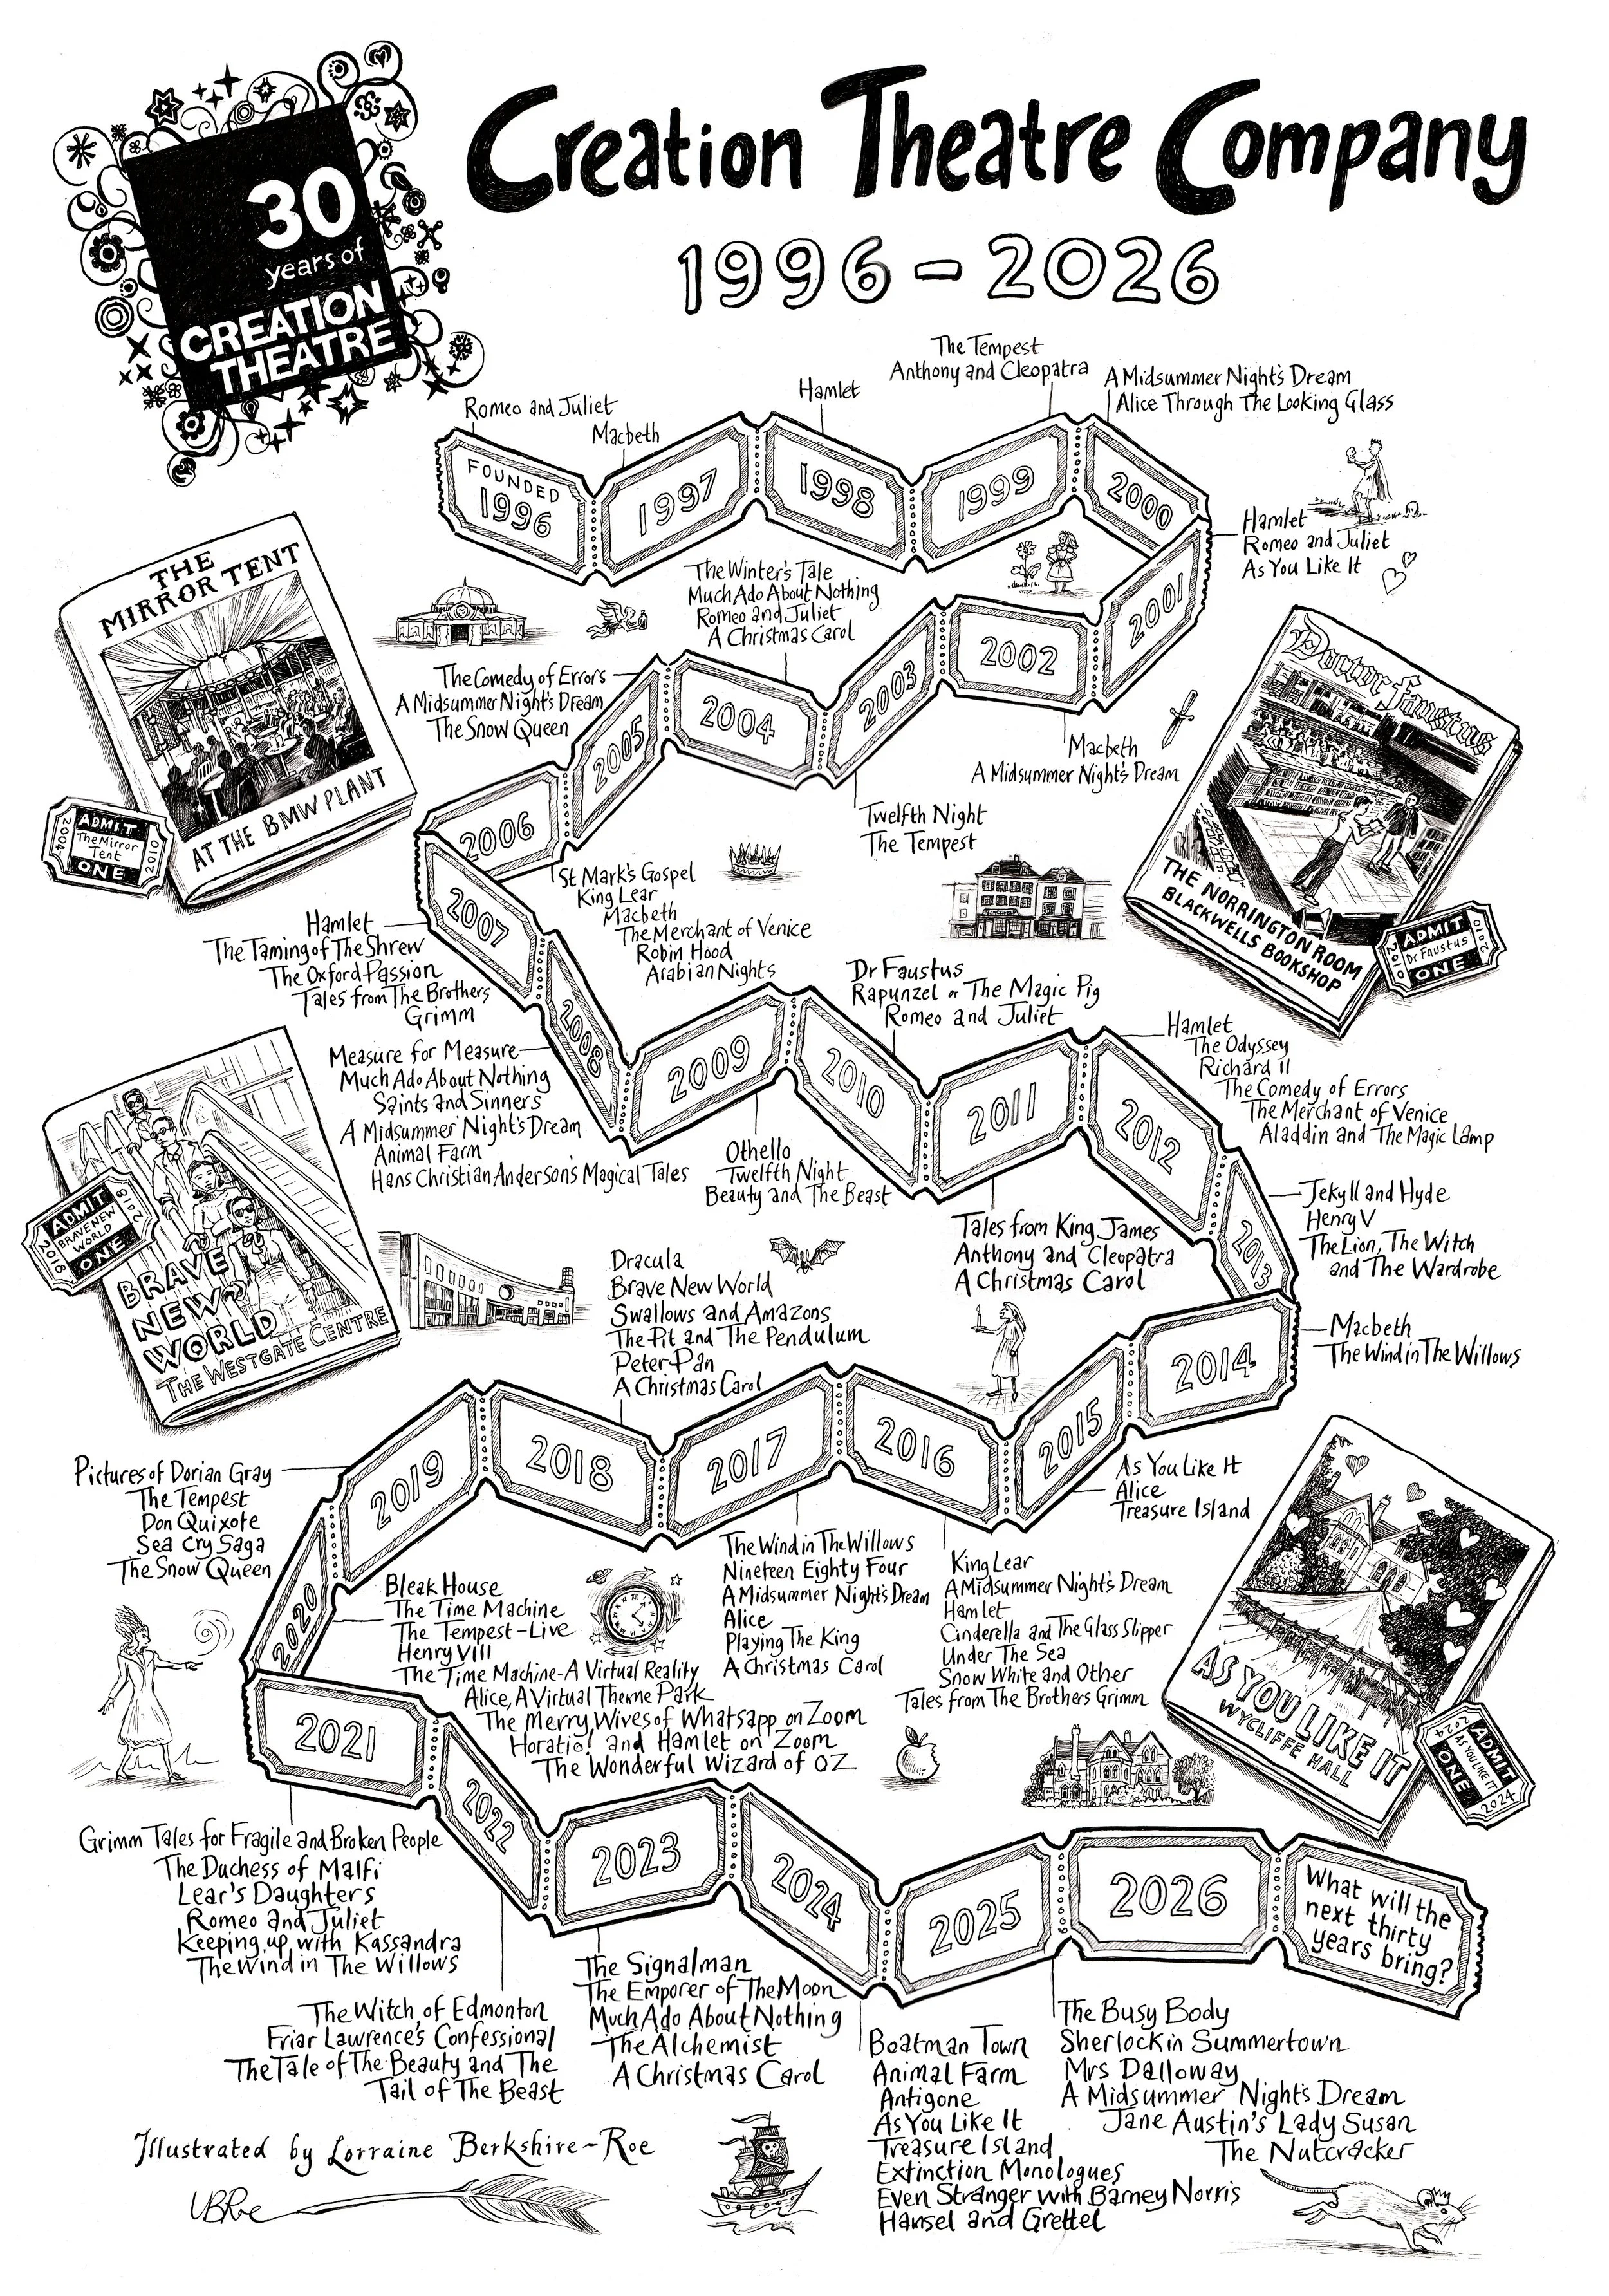 30
years of
CREATION
THEATRE
Creation Theatre Company
1996-2026
Romeo and Juliet
FOUNDED
1996
Macbeth
1997
Hamlet
1998
The Tempest
Anthony and Cleopatra
1999
A Midsummer Night's Dream
Alice Through The Looking Glass
2000
Hamlet
Romeo and Juliet
As You Like It
2001
2002
Macbeth
A Midsummer Night's Dream
2003
Twelfth Night
The Tempest
The Winter's Tale
Much Ado About Nothing
Romeo and Juliet
A Christmas Carol
2004
The Comedy of Errors
A Midsummer Night's Dream
The Snow Queen
2005
2006
St Mark's Gospel
King Lear
Macbeth
The Merchant of Venice
Robin Hood
Arabian Nights
THE
MIRROR TENT
AT THE BMW PLANT
2004
ADMIT
The Mirror
Tent
ONE
2010
Doctor Faustus
THE NORRINGTON ROOM
BLACKWELLS BOOKSHOP
2010
ADMIT
Dr Faustus
ONE
2010
2007
Hamlet
The Taming of The Shrew
The Oxford Passion
Tales from The Brothers
Grimm
2008
Measure for Measure
Much Ado About Nothing
Saints and Sinners
A Midsummer Night's Dream
Animal Farm
Hans Christian Anderson's Magical Tales
2009
Othello
Twelfth Night
Beauty and The Beast
Dr Faustus
Rapunzel or The Magic Pig
Romeo and Juliet
2010
2011
Tales from King James
Anthony and Cleopatra
A Christmas Carol
Hamlet
The Odyssey
Richard II
The Comedy of Errors
The Merchant of Venice
Aladdin and The Magic Lamp
2012
Jekyll and Hyde
Henry V
The Lion, The Witch
and The Wardrobe
2013
Macbeth
The Wind in The Willows
2014
2015
As You Like It
Alice
Treasure Island
2016
King Lear
A Midsummer Night's Dream
Hamlet
Cinderella and The Glass Slipper
Under The Sea
Snow White and Other
Tales from The Brothers Grimm
2017
The Wind in The Willows
Nineteen Eighty Four
A Midsummer Night's Dream
Alice
Playing The King
A Christmas Carol
Dracula
Brave New World
Swallows and Amazons
The Pit and The Pendulum
Peter Pan
A Christmas Carol
2018
2018
ADMIT
BRAVE NEW
WORLD
ONE
2018
BRAVE
NEW
WORLD
THE WESTGATE CENTRE
2019
Pictures of Dorian Gray
The Tempest
Don Quixote
Sea Cry Saga
The Snow Queen
2020
Bleak House
The Time Machine
The Tempest-Live
Henry VIII
The Time Machine-A Virtual Reality
Alice, A Virtual Theme Park
The Merry Wives of Whatsapp on Zoom
Horatio! and Hamlet on Zoom
The Wonderful Wizard of OZ
AS YOU LIKE IT
WYCLIFFE HALL
2024
ADMIT
AS YOU LIKE IT
ONE
2024
2021
Grimm Tales for Fragile and Broken People
The Duchess of Malfi
Lear's Daughters
Romeo and Juliet
Keeping up with Kassandra
The Wind in The Willows
2022
The Witch of Edmonton
Friar Lawrence's Confessional
The Tale of The Beauty and The
Tail of The Beast
2023
The Signalman
The Emporer of The Moon
Much Ado About Nothing
The Alchemist
A Christmas Carol
2024
Boatman Town
Animal Farm
Antigone
As You Like It
Treasure Island
Extinction Monologues
Even Stranger with Barney Norris
Hansel and Grettel
2025
The Busy Body
Sherlock in Summertown
Mrs Dalloway
A Midsummer Night's Dream
Jane Austin's Lady Susan
The Nutcracker
2026
What will the
next thirty
years bring?
Illustrated by Lorraine Berkshire-Roe
LBRoe